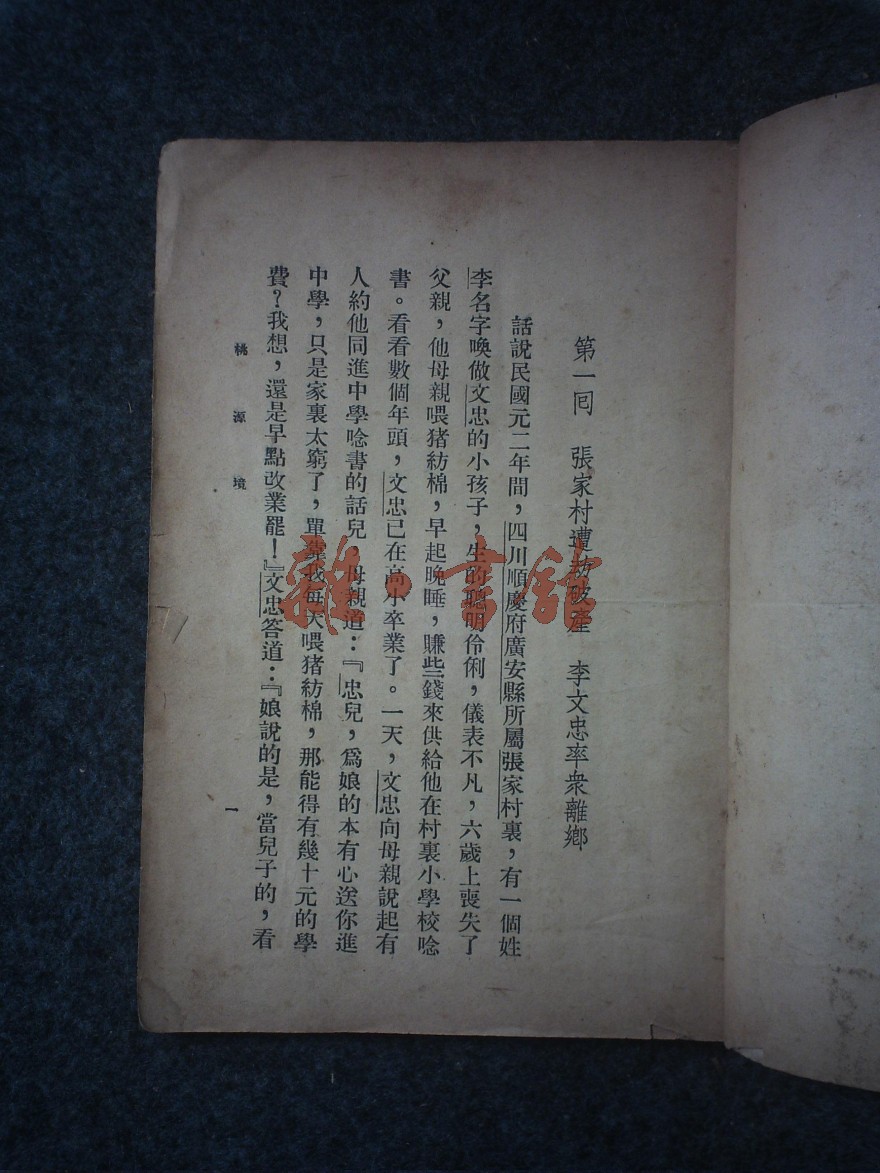 第一囘　張家村遭劫破產　李文忠率衆離鄉
話說民國元二年間，四川順慶府廣安縣所屬張家村裏，有一個姓
李名字喚做文忠的小孩子，生的聰明伶俐，儀表不凡，六歲上喪失了
父親，他母親喂猪紡棉，早起晚睡，賺些錢來供給他在村裏小學校唸
書。看看數個年頭，文忠已在高小卒業了。一天，文忠向母親說起有
人約他同進中學唸書的話兒，母親道：『忠兒，爲娘的本有心送你進
中學，只是家裏太窮了，單靠我每天喂猪紡棉，那能得有幾十元的學
費？我想，還是早點改業罷！』文忠答道：『娘說的是，當兒子的，看
桃源境
一
雜·書館